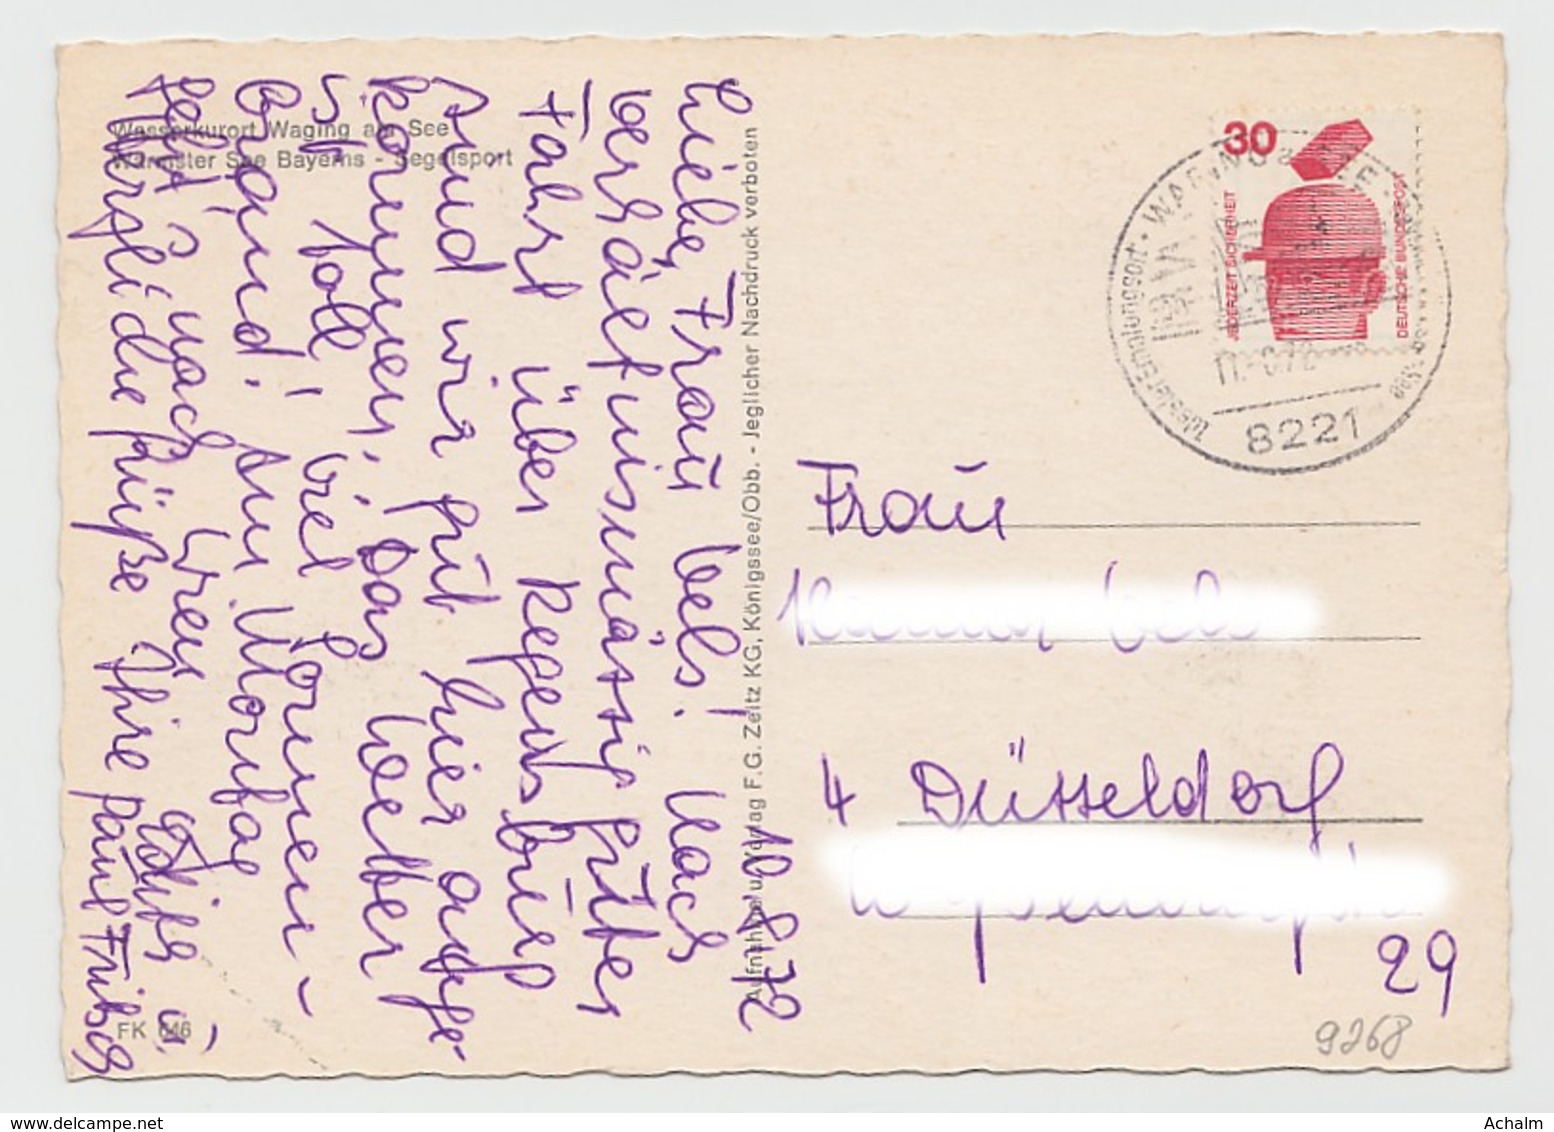 Wasserkurort Waging am See
Wärmster See Bayerns - Segelsport
10.8.72
Liebe Frau Vels! Nach
verhältnismässig guter
Fahrt über Regensburg
sind wir gut hier ange-
kommen, das Wetter
ist toll! viel Sonnen-
bräune! Am Montag
geht's nach Wien
Herzliche Grüße Ihre
Paul
FK 646
Aufnahme u. Verlag F.G. Zeitz KG, Königssee/Obb. - Jeglicher Nachdruck verboten
30
JEDERZEIT SICHERHEIT
DEUTSCHE BUNDESPOST
8221
Frau
4 Düsseldorf
29
9268
delcampe.net
Achalm